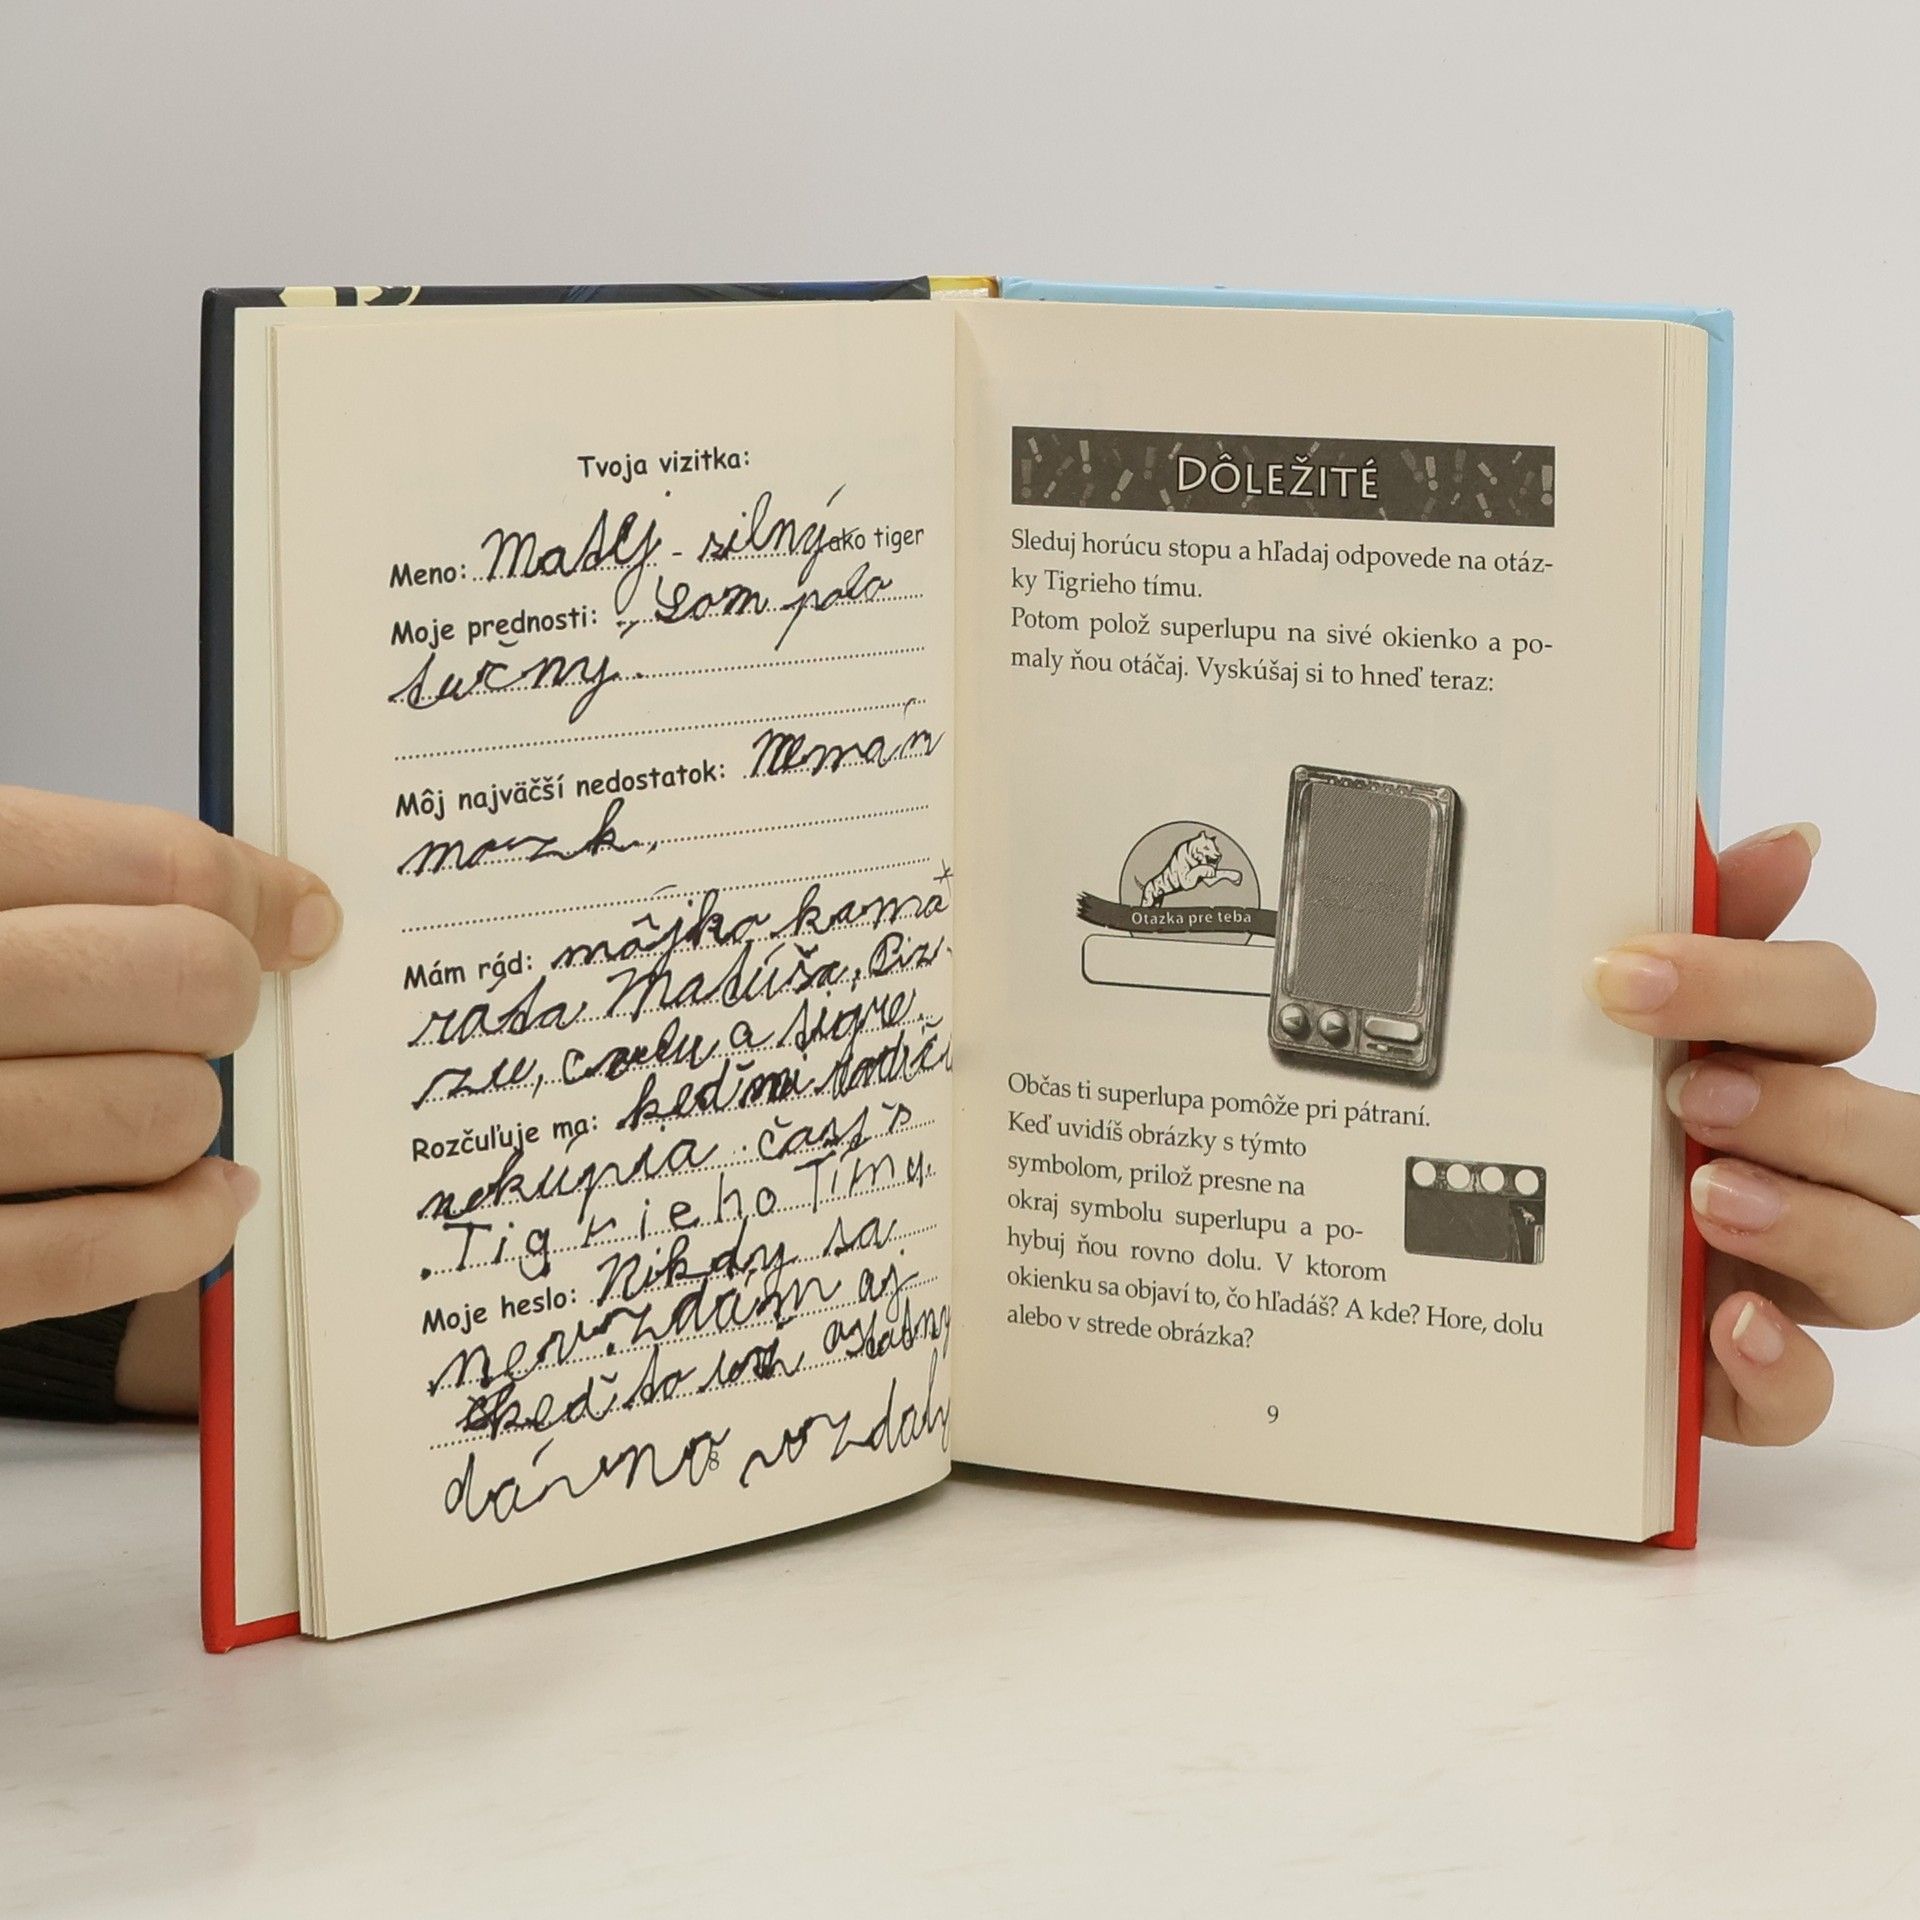 Tvoja vizitka:
Meno: Matej - silný ako tiger
Moje prednosti: Som polo
tučný.
Môj najväčší nedostatok: Nemám
mozk.
Mám rád: môjho kama
rata Matúša, Piz-
zu, colu a tigre.
Rozčuľuje ma: keď mi rodič
nekúpia časť s
Tigrieho Tímu.
Moje heslo: Nikdy sa
nevzdám aj
keď to už ostatný
dávno vzdaly
8
DÔLEŽITÉ
Sleduj horúcu stopu a hľadaj odpovede na otáz-
ky Tigrieho tímu.
Potom polož superlupu na sivé okienko a po-
maly ňou otáčaj. Vyskúšaj si to hneď teraz:
Otazka pre teba
Občas ti superlupa pomôže pri pátraní.
Keď uvidíš obrázky s týmto
symbolom, prilož presne na
okraj symbolu superlupu a po-
hybuj ňou rovno dolu. V ktorom
okienku sa objaví to, čo hľadáš? A kde? Hore, dolu
alebo v strede obrázka?
9